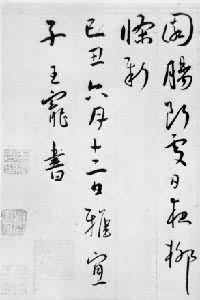 園腸斷處日夜柳
條新
己丑六月十二日雅宜
子王寵書